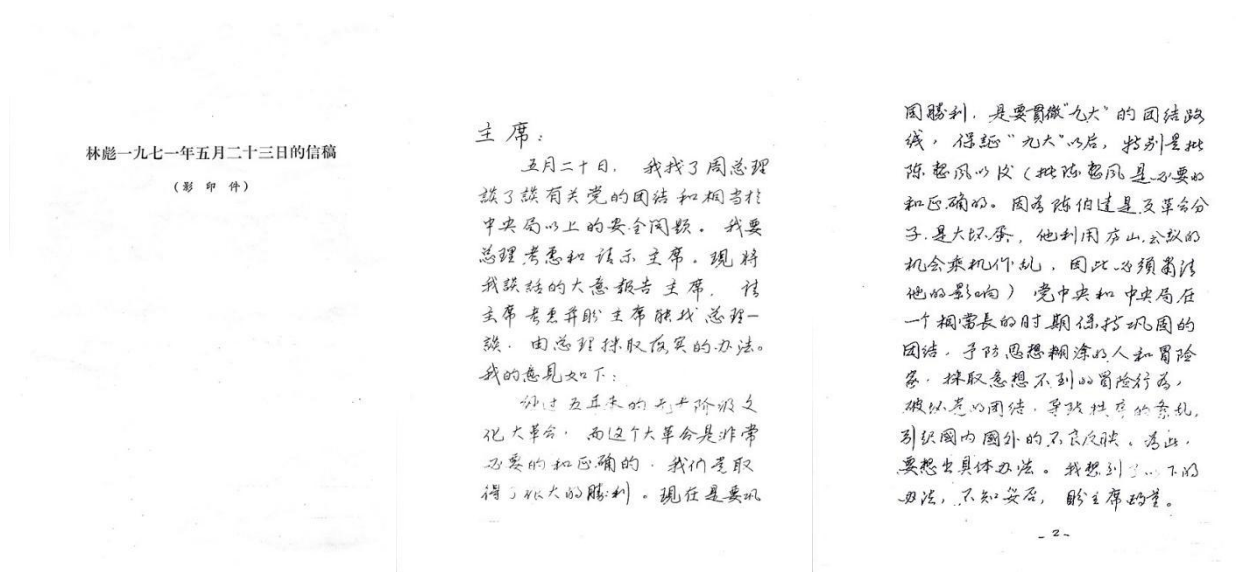 林彪一九七一年五月二十三日的信稿
(影印件)
主席：
五月二十日，我找了周总理
談了談有关党的团结和相当於
中央局以上的安全問題。我要
总理考慮和请示主席。現将
我談話的大意報告主席，请
主席考慮并盼主席能找总理一
談，由总理採取落实的办法。
我的意見如下：
经过五年来的无产阶级文
化大革命，而这个大革命是非常
必要的和正确的，我们党取
得了很大的勝利。現在是要巩
固勝利，是要貫徹“九大”的团结路
线，保証“九大”以后，特别是批
陈整风以後（批陈整风是必要的
和正确的。因為陈伯达是反革命分
子，是大坏蛋，他利用庐山会议的
机会乘机作乱，因此必须肅清
他的影响）党中央和中央局在
一个相當長的时期保持巩固的
团结，予防思想糊涂的人和冒险
家，採取意想不到的冒险行為，
破坏党的团结，导致秩序的紊乱，
引起國内國外的不良反映。為此，
要想出具体办法。我想到了以下的
办法，不知妥否，盼主席酌定。
-2-